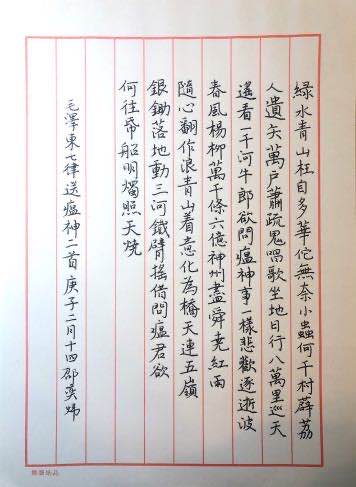 綠水青山枉自多華佗無奈小蟲何千村薜荔
人遺矢萬戶蕭疏鬼唱歌坐地日行八萬里巡天
遙看一千河牛郎欲問瘟神事一樣悲歡逐逝波
春風楊柳萬千條六億神州盡舜堯紅雨
隨心翻作浪青山着意化為橋天連五嶺
銀鋤落地動三河鐵臂搖借問瘟君欲
何往帋船明燭照天燒
毛澤東七律送瘟神二首庚子二月十四邵奕